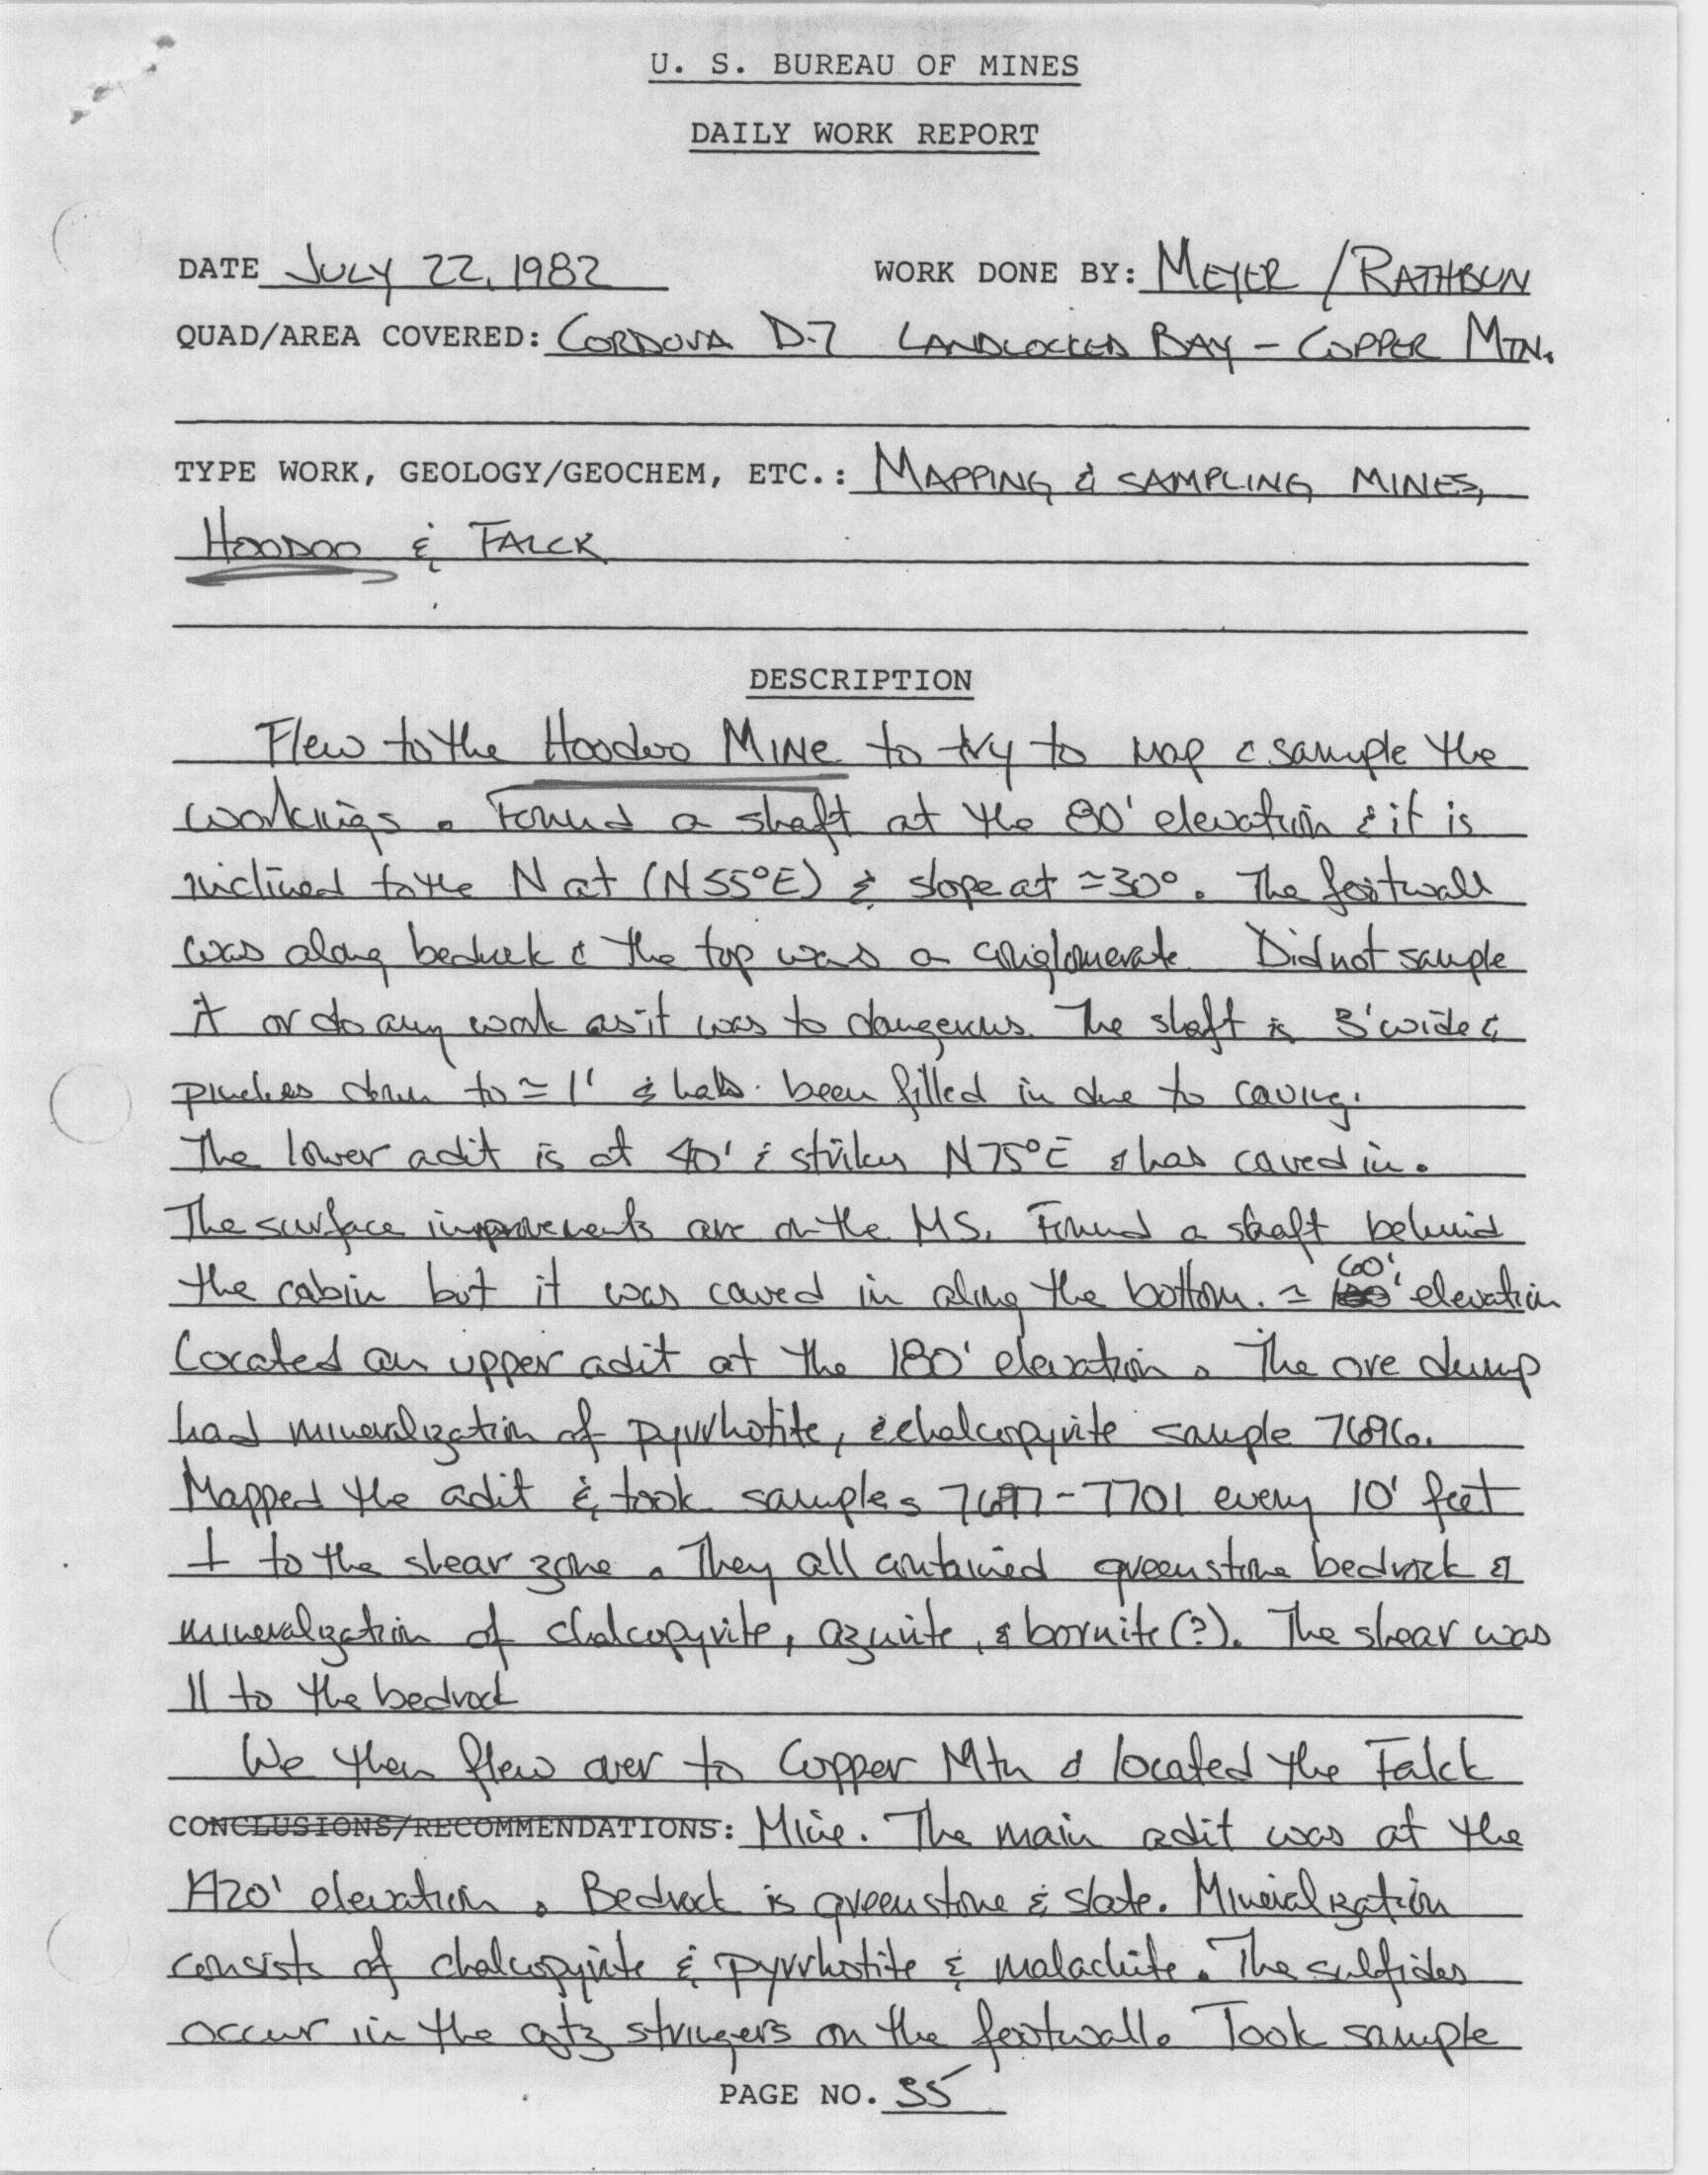 U. S. BUREAU OF MINES
DAILY WORK REPORT
DATE JULY 22, 1982 WORK DONE BY: MEYER / RATHBUN
QUAD/AREA COVERED: CORDOVA D-7 LANDLOCKED BAY - COPPER MTN.
TYPE WORK, GEOLOGY/GEOCHEM, ETC.: MAPPING & SAMPLING MINES,
HOODOO & FALCK
DESCRIPTION
Flew to the Hoodoo MINE to try to map & sample the
workings. Found a shaft at the 80' elevation & it is
inclined to the N at (N55°E) & slope at ≃30°. The footwall
was along bedrock & the top was a conglomerate Did not sample
it or do any work as it was to dangerous. The shaft is 3' wide &
pinches down to ≃ 1' & has been filled in due to caving.
The lower adit is at 40' & strikes N75°E & has caved in.
The surface improvements are on the MS. Found a shaft behind
the cabin but it was caved in along the bottom. ≃ 60' elevation
Located an upper adit at the 180' elevation. The ore dump
had mineralization of pyrrhotite, & chalcopyrite sample 7696.
Mapped the adit & took samples 7697-7701 every 10' feet
⊥ to the shear zone. They all contained greenstone bedrock &
mineralization of chalcopyrite, azurite, & bornite (?). The shear was
|| to the bedrock
We then flew over to Copper Mtn & located the Falck
CONCLUSIONS/RECOMMENDATIONS: Mine. The main adit was at the
1420' elevation. Bedrock is greenstone & slate. Minerialization
consists of chalcopyrite & pyrrhotite & malachite. The sulfides
occur in the qtz stringers on the footwall. Took sample
PAGE NO. 35